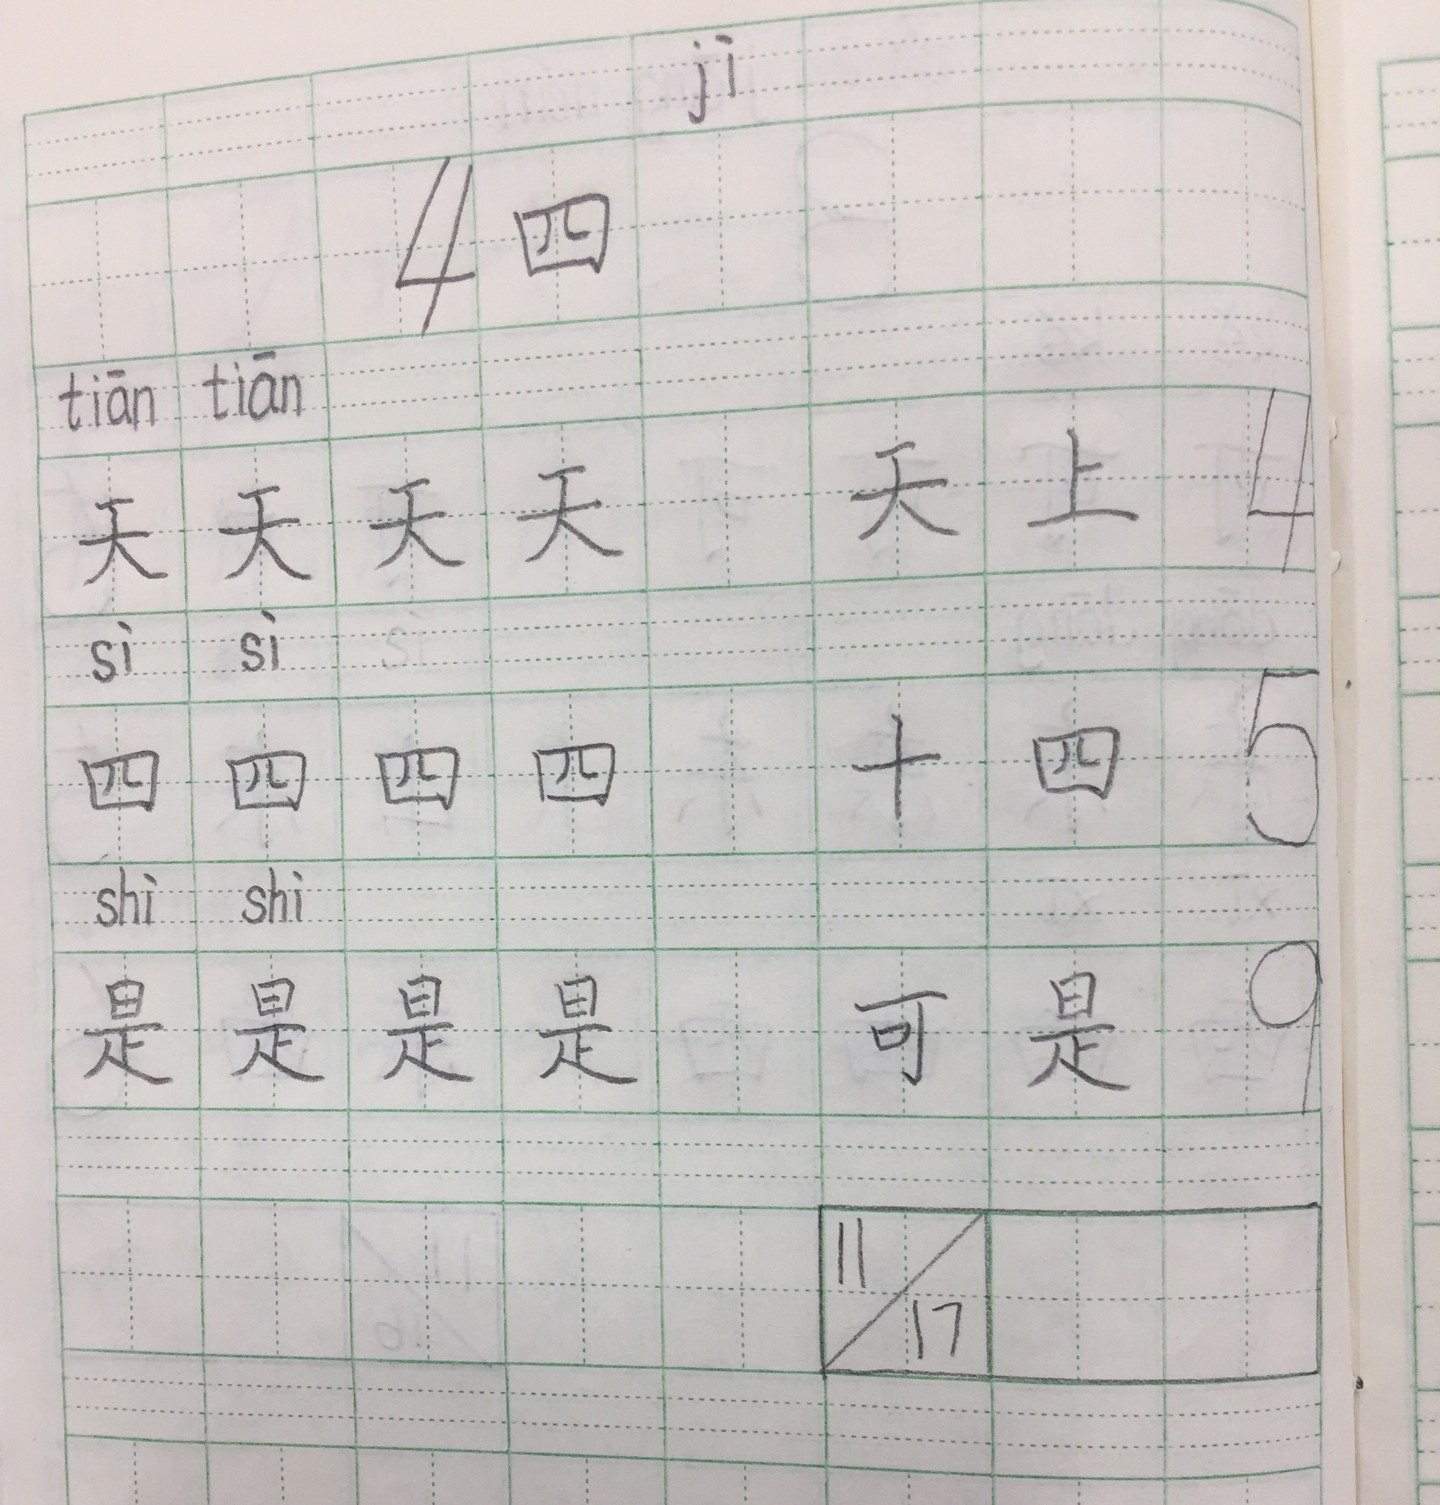 jì
4 四
tiān tiān
天 天 天 天 天 上 4
sì sì
四 四 四 四 十 四 5
shì shì
是 是 是 是 可 是 9
11/17